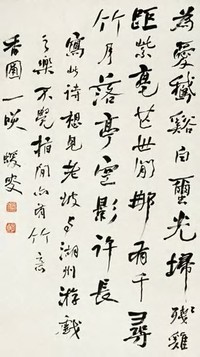 為愛鵝谿白繭光掃殘雞
距紫毫芒世間那有千尋
竹月落亭空影許長
寫此詩想見老坡与湖州游戲
之樂不覺指間亦有竹意
香圃一咲 蝯叟